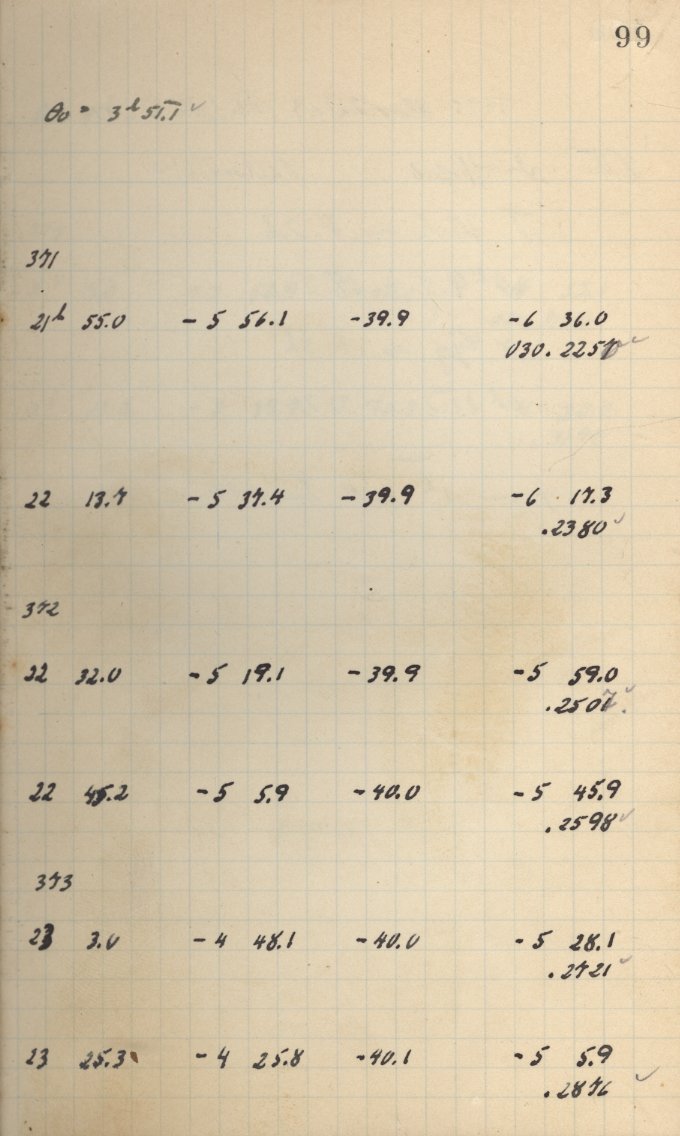 99
θ₀ = 3ʰ 51.1 ✓
371
21ʰ 55.0 - 5 56.1 -39.9 -6 36.0
030.2257 ✓
22 13.7 - 5 37.4 -39.9 -6 17.3
.2380 ✓
372
22 32.0 - 5 19.1 -39.9 -5 59.0
✓
22 45.2 - 5 5.9 -40.0 - 5 45.9
.2598 ✓
373
23 3.0 - 4 48.1 -40.0 - 5 28.1
.2721 ✓
23 25.3 - 4 25.8 -40.1 - 5 5.9
.2876 ✓